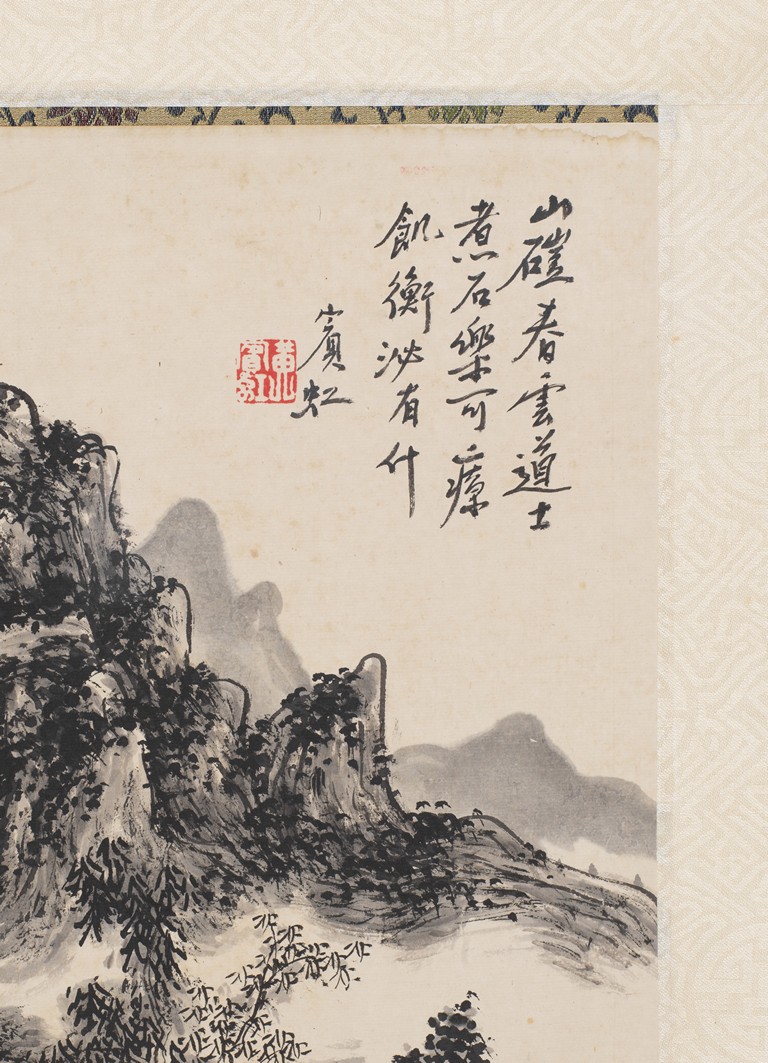 山磴春雲道士
煮石樂可療
飢衡泌有什
賓虹
黃賓虹